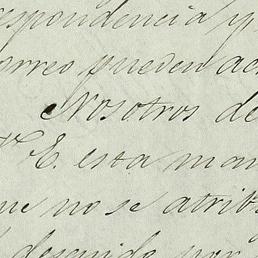 espondencia y
orreo pueden ac
Nosotros de
V. E. esta man
ue no se atrib
descuido por